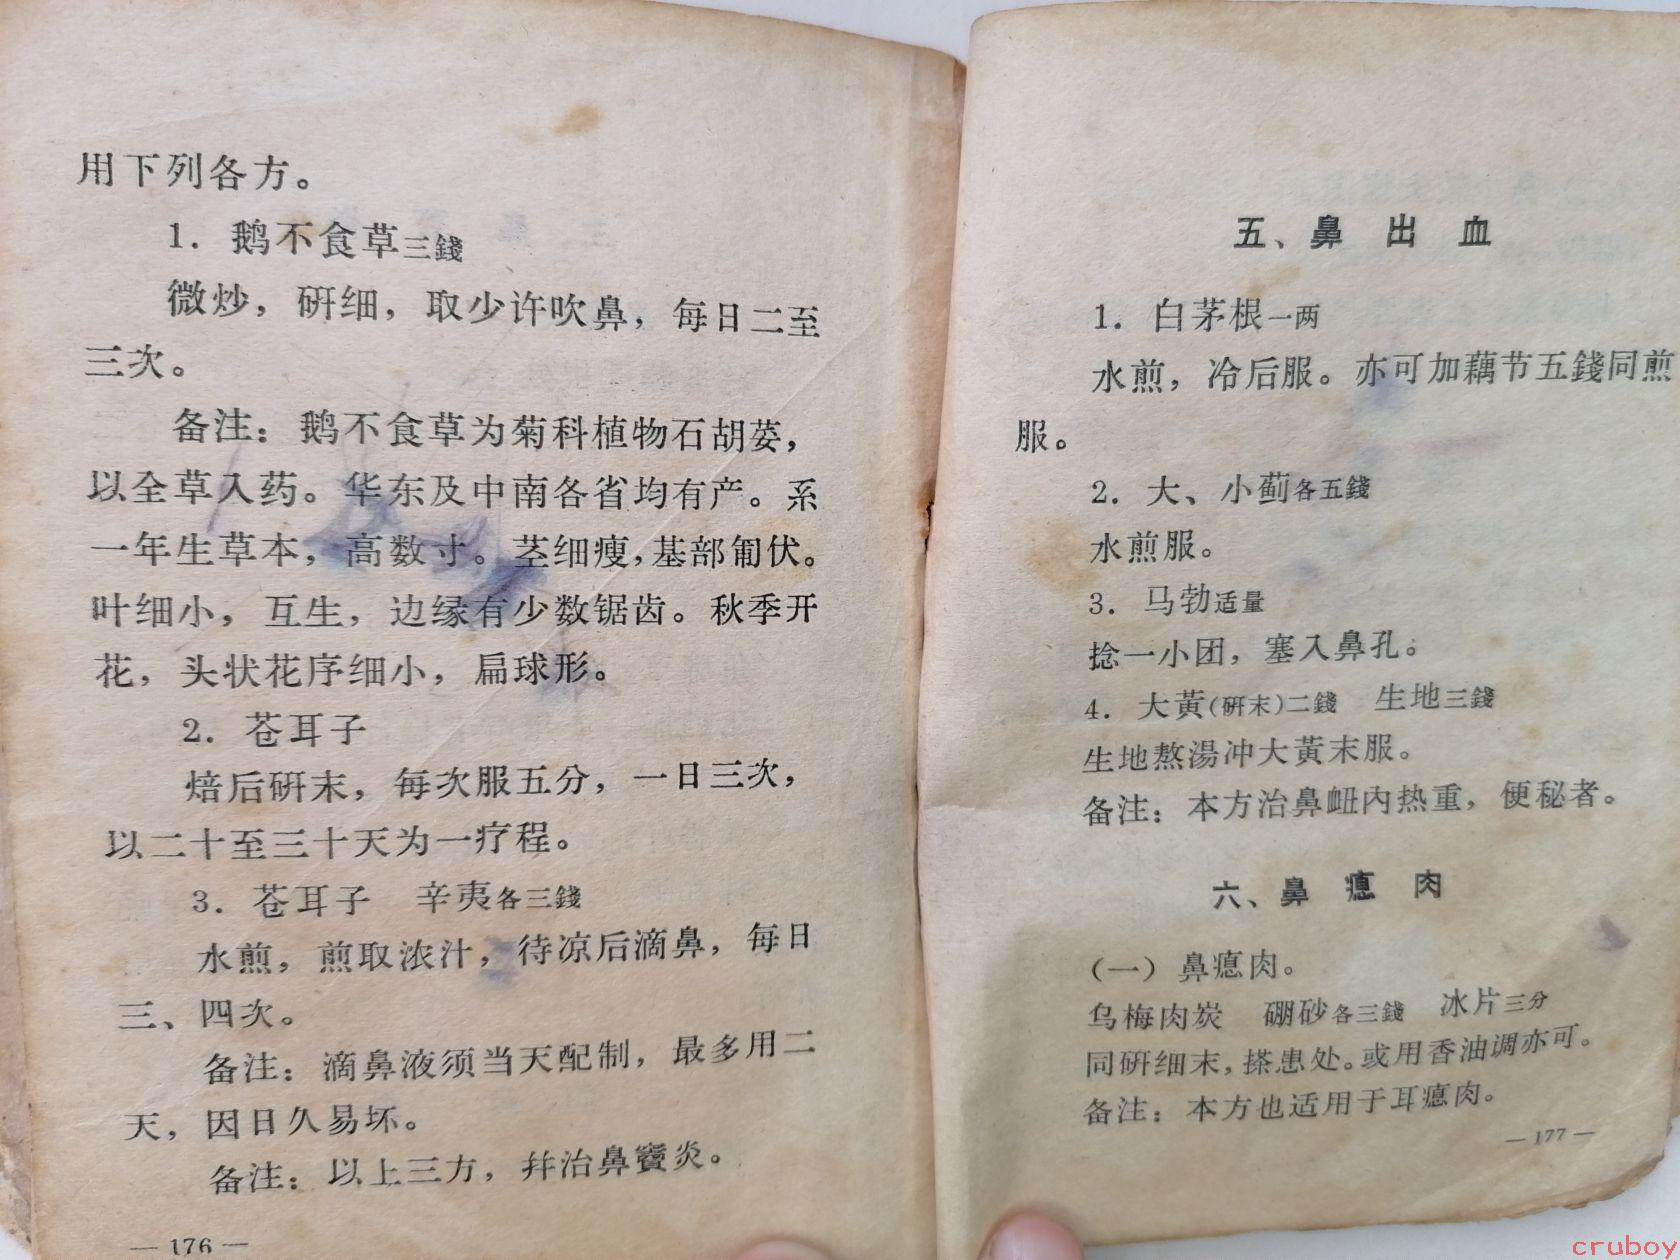 用下列各方。
1. 鹅不食草三錢
微炒，研细，取少许吹鼻，每日二至
三次。
备注：鹅不食草为菊科植物石胡荽，
以全草入药。华东及中南各省均有产。系
一年生草本，高数寸。茎细瘦，基部匍伏。
叶细小，互生，边缘有少数锯齿。秋季开
花，头状花序细小，扁球形。
2. 苍耳子
焙后研末，每次服五分，一日三次，
以二十至三十天为一疗程。
3. 苍耳子 辛夷各三錢
水煎，煎取浓汁，待凉后滴鼻，每日
三、四次。
备注：滴鼻液须当天配制，最多用二
天，因日久易坏。
备注：以上三方，幷治鼻竇炎。
— 176 —
五、鼻出血
1. 白茅根一两
水煎，冷后服。亦可加藕节五錢同煎
服。
2. 大、小蓟各五錢
水煎服。
3. 马勃适量
捻一小团，塞入鼻孔。
4. 大黄(研末)二錢 生地三錢
生地熬湯冲大黄末服。
备注：本方治鼻衄內热重，便秘者。
六、鼻瘜肉
(一) 鼻瘜肉。
乌梅肉炭 硼砂各三錢 冰片三分
同研细末，搽患处。或用香油调亦可。
备注：本方也适用于耳瘜肉。
— 177 —
cruboy